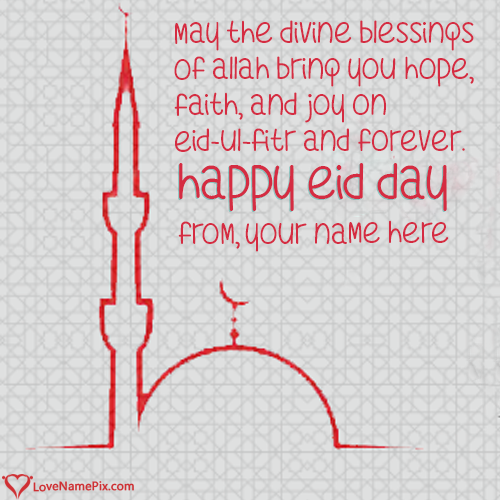 May the divine blessings
of allah bring you hope,
faith, and joy on
eid-ul-fitr and forever.
happy eid day
from, your name here
LoveNamePix.com